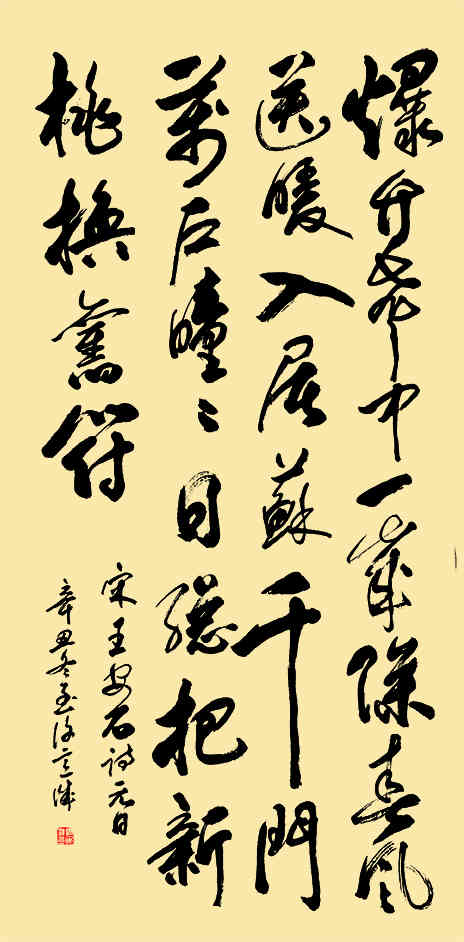 爆竹聲中一歲除春風
送暖入屠蘇千門
萬戶曈々日總把新
桃換舊符
宋王安石詩元日
辛丑冬至